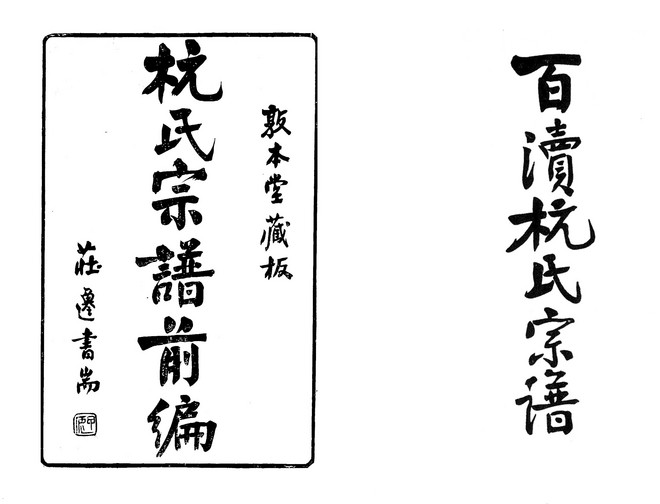 百瀆杭氏宗谱
敦本堂藏板
杭氏宗譜前編
莊遷書耑